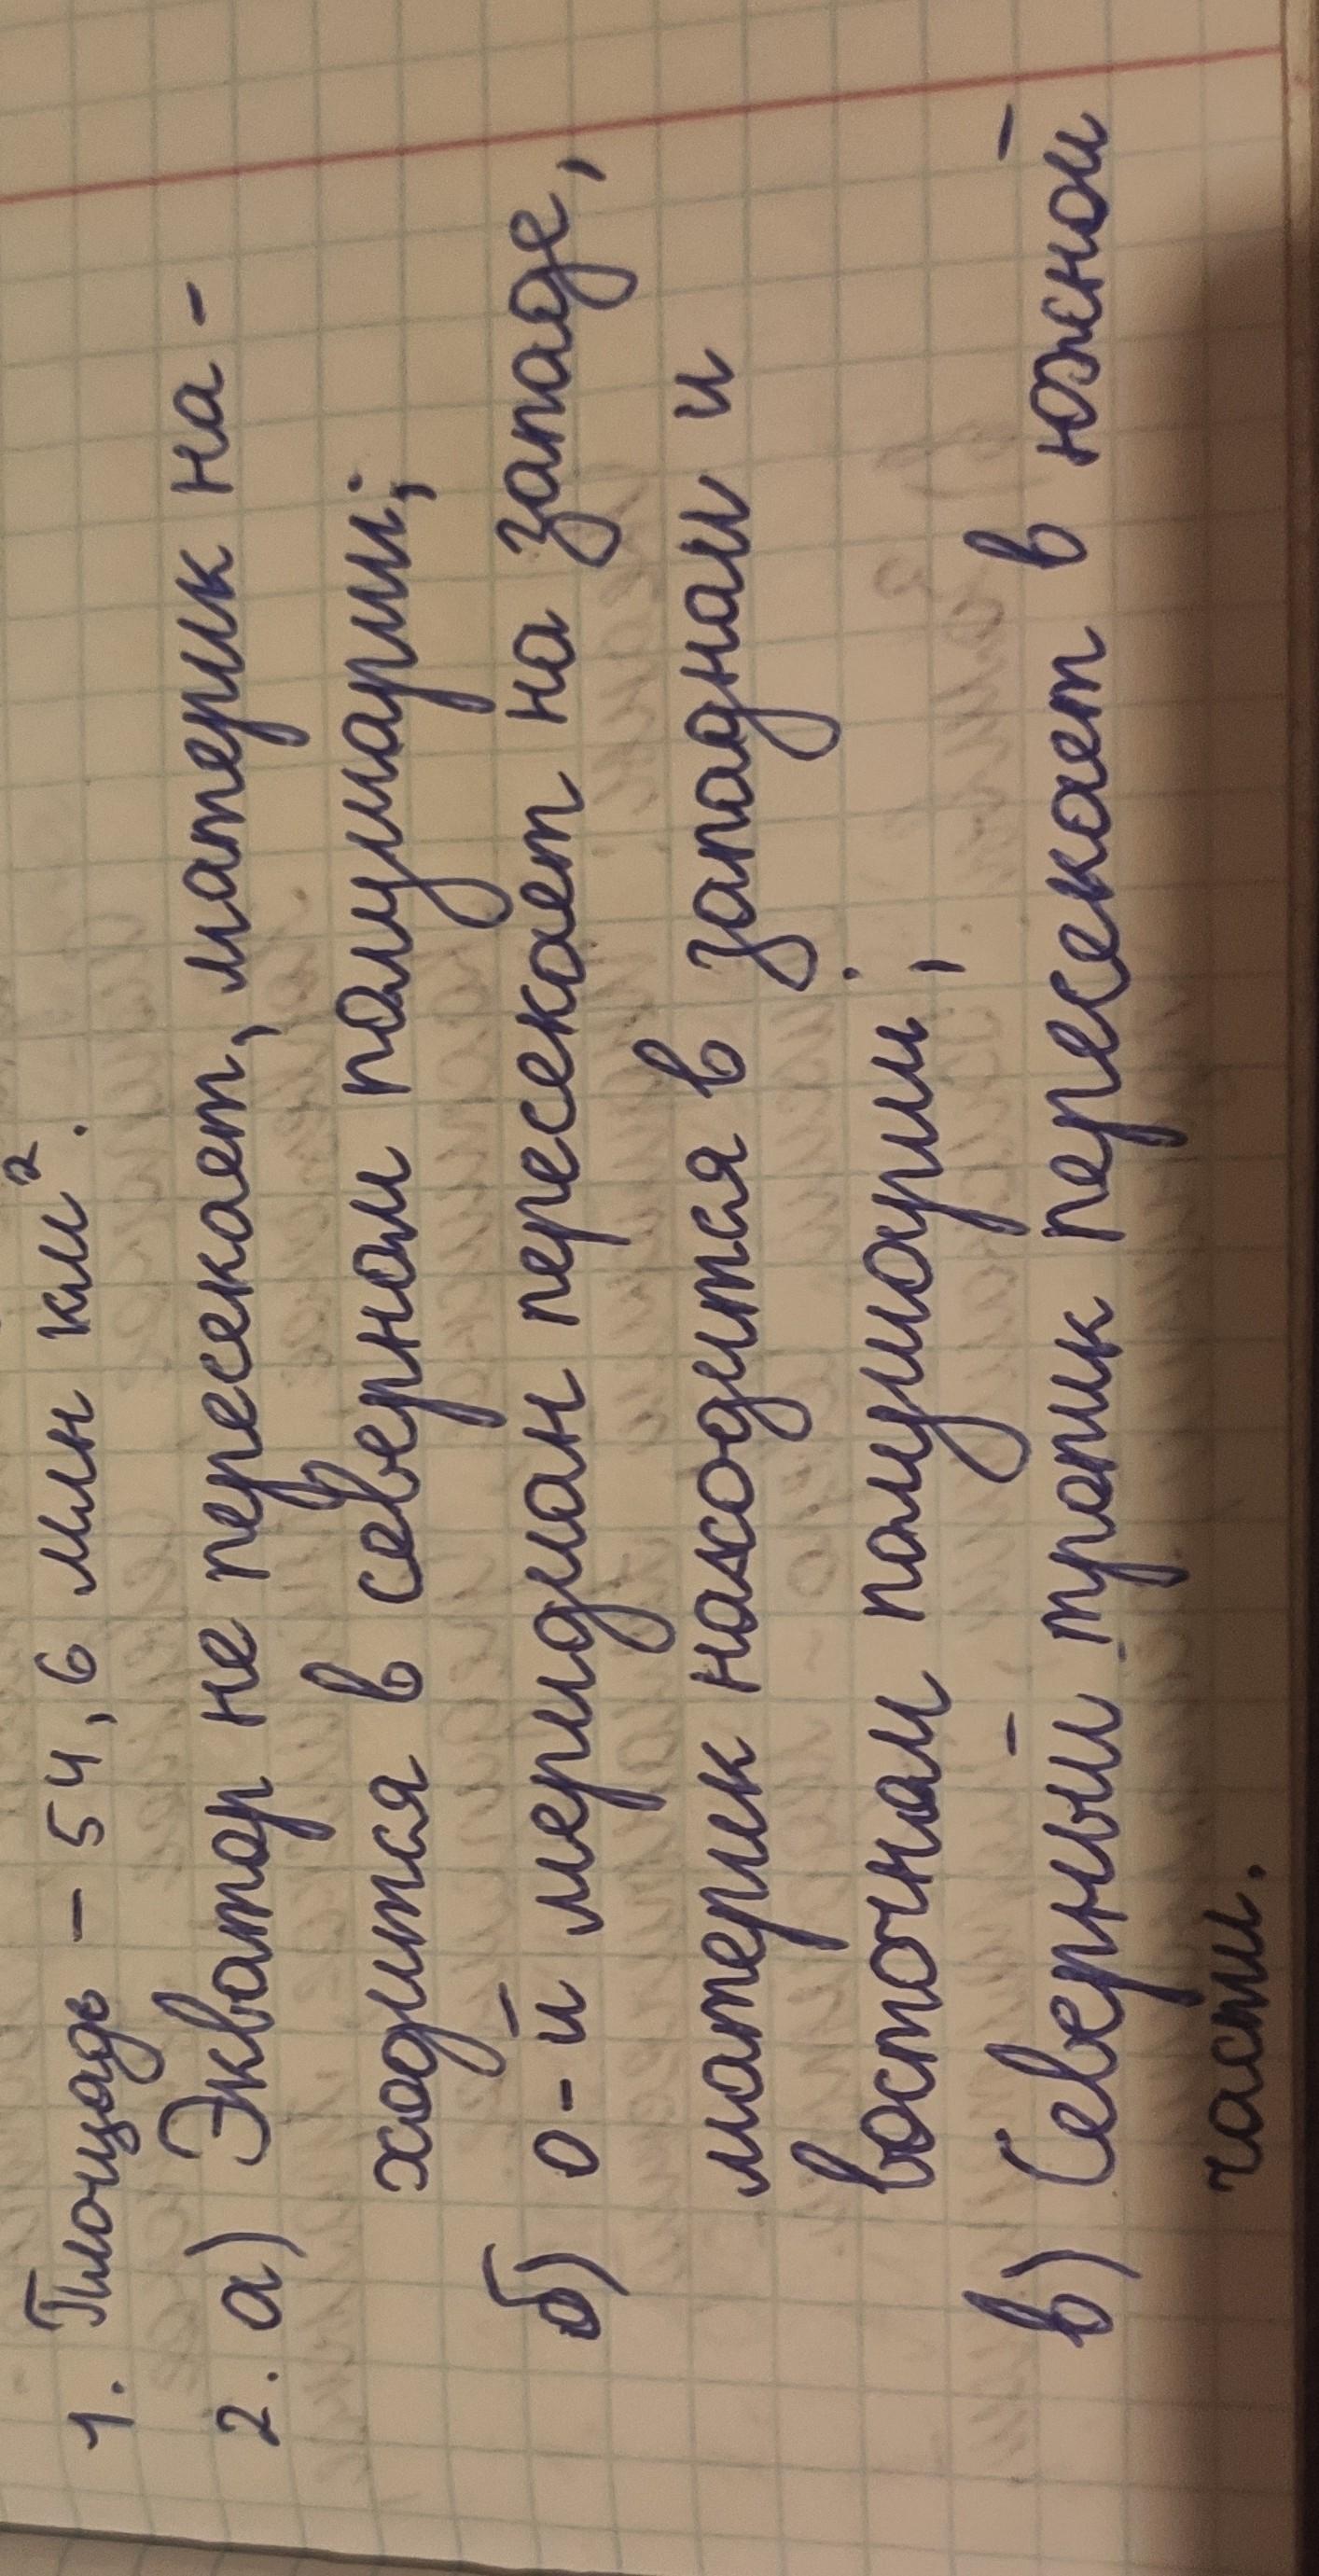 1. Площадь – 54,6 млн км².
2. а) Экватор не пересекает, материк на-
ходится в северном полушарии;
б) 0-й меридиан пересекает на западе,
материк находится в западном и
восточном полушарии;
в) Северный тропик пересекает в южной
части.